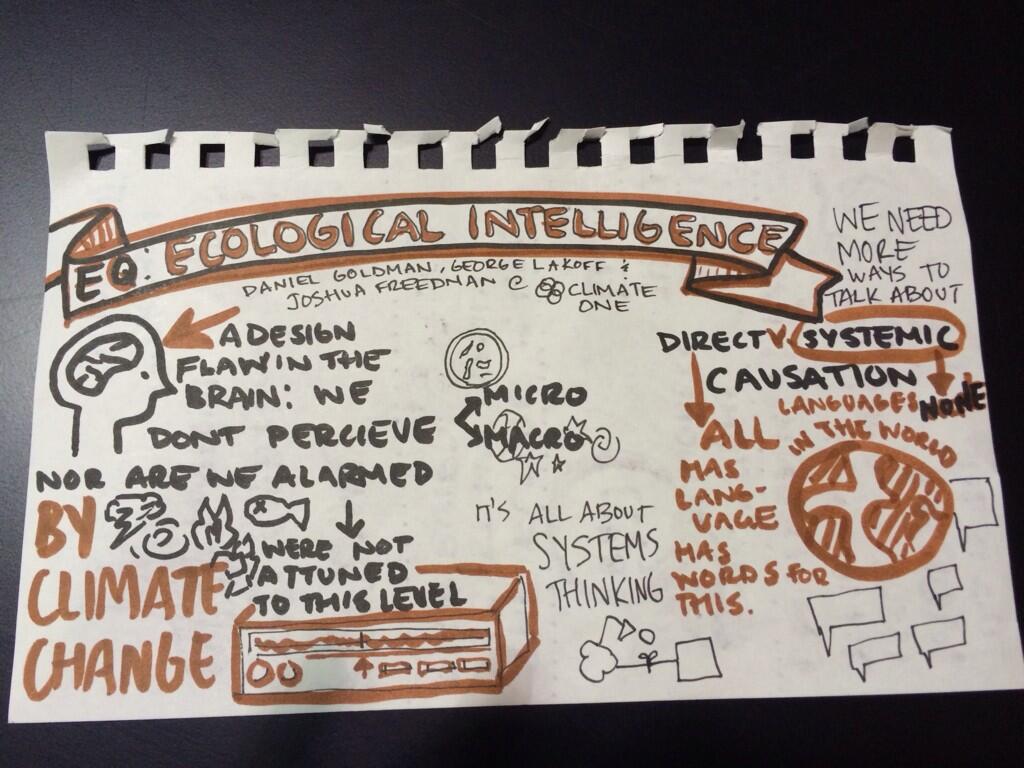 EQ: ECOLOGICAL INTELLIGENCE
DANIEL GOLDMAN, GEORGE LAKOFF &
JOSHUA FREEDMAN @ CLIMATE
ONE
A DESIGN
FLAW IN THE
BRAIN: WE
DONT PERCIEVE
NOR ARE WE ALARMED
BY
CLIMATE
CHANGE
WERE NOT
ATTUNED
TO THIS LEVEL
MICRO
MACRO
IT'S ALL ABOUT
SYSTEMS
THINKING
WE NEED
MORE
WAYS TO
TALK ABOUT
DIRECT V. SYSTEMIC
CAUSATION
ALL
HAS
LANG-
UAGE
HAS
WORDS FOR
THIS.
LANGUAGES NONE
IN THE WORLD